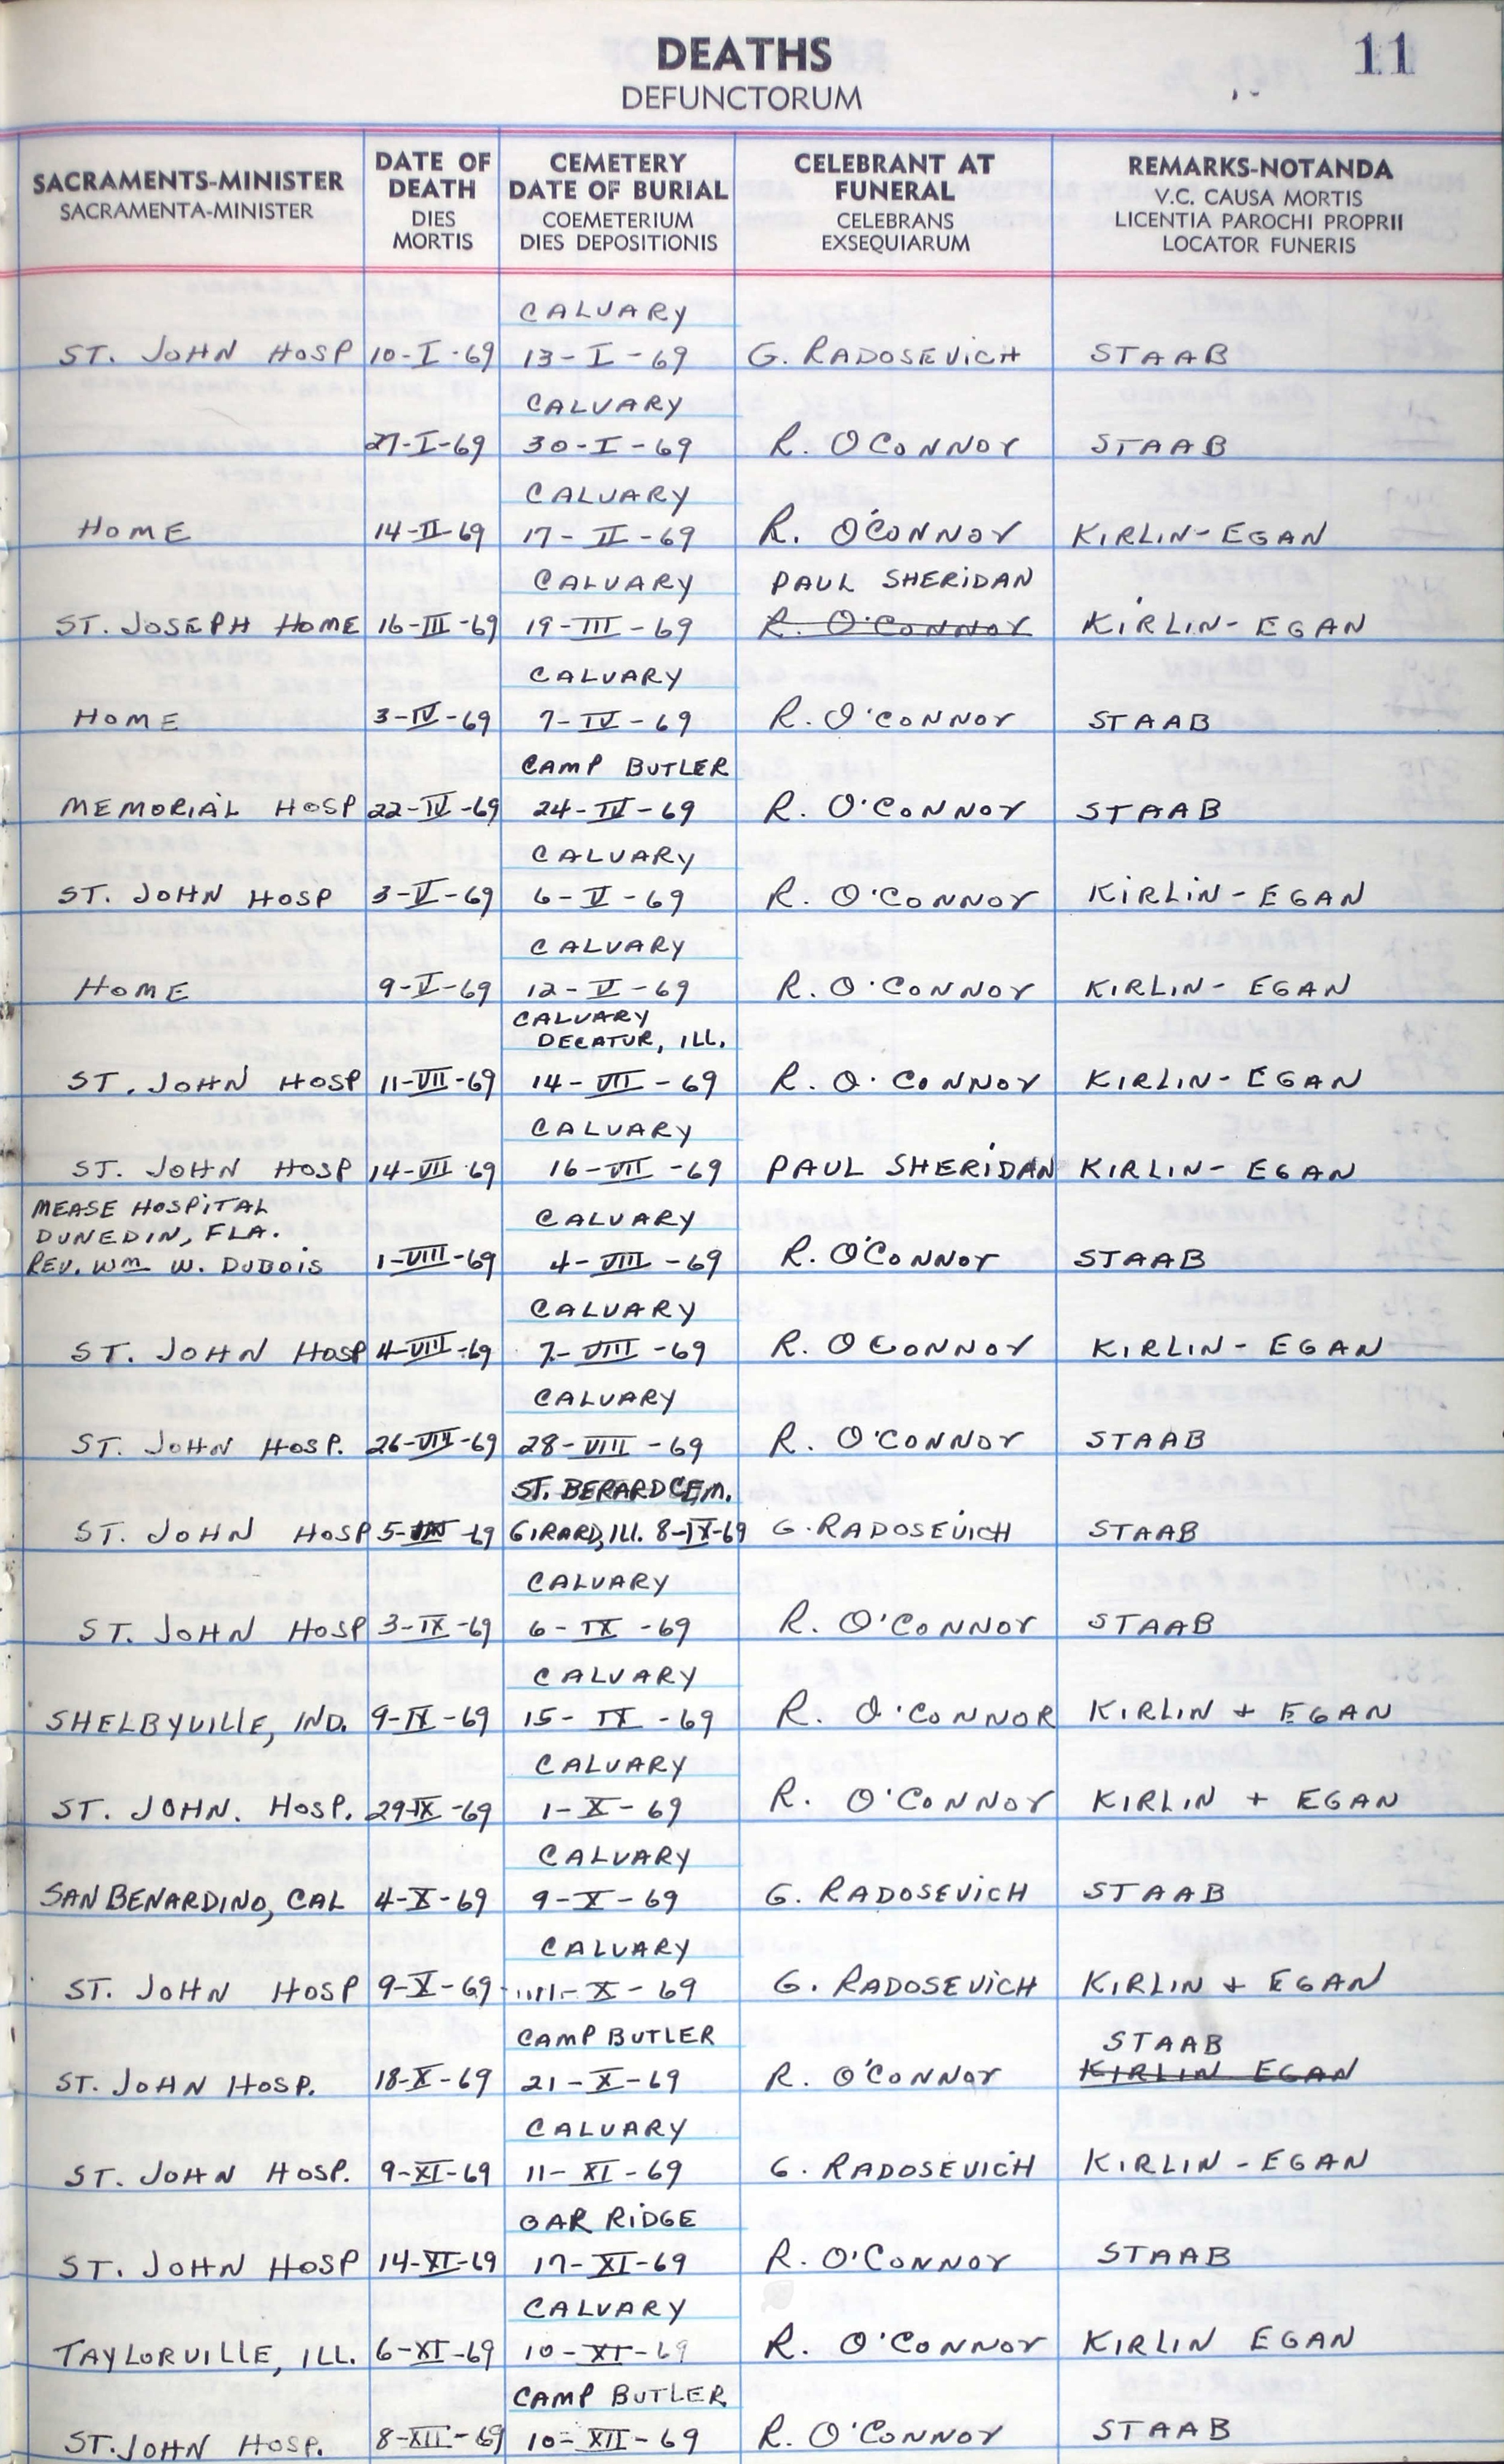 DEATHS
11
DEFUNCTORUM
SACRAMENTS-MINISTER
SACRAMENTA-MINISTER
DATE OF
DEATH
DIES
MORTIS
CEMETERY
DATE OF BURIAL
COEMETERIUM
DIES DEPOSITIONIS
CELEBRANT AT
FUNERAL
CELEBRANS
EXSEQUIARUM
REMARKS-NOTANDA
V.C. CAUSA MORTIS
LICENTIA PAROCHI PROPRII
LOCATOR FUNERIS
CALVARY
ST. JOHN HOSP 10-I-69 13-I-69 G. RADOSEVICH STAAB
CALVARY
27-I-69 30-I-69 R. O'CONNOR STAAB
CALVARY
HOME 14-II-69 17-II-69 R. O'CONNOR KIRLIN-EGAN
CALVARY PAUL SHERIDAN
ST. JOSEPH HOME 16-III-69 19-III-69 R. O'CONNOR KIRLIN-EGAN
CALVARY
HOME 3-IV-69 7-IV-69 R. O'CONNOR STAAB
CAMP BUTLER
MEMORIAL HOSP 22-IV-69 24-IV-69 R. O'CONNOR STAAB
CALVARY
ST. JOHN HOSP 3-V-69 6-V-69 R. O'CONNOR KIRLIN-EGAN
CALVARY
HOME 9-V-69 12-V-69 R. O'CONNOR KIRLIN-EGAN
CALVARY
DECATUR, ILL.
ST. JOHN HOSP 11-VII-69 14-VII-69 R. O'CONNOR KIRLIN-EGAN
CALVARY
ST. JOHN HOSP 14-VII-69 16-VII-69 PAUL SHERIDAN KIRLIN-EGAN
MEASE HOSPITAL
DUNEDIN, FLA. CALVARY
REV. WM W. DUBOIS 1-VIII-69 4-VIII-69 R. O'CONNOR STAAB
CALVARY
ST. JOHN HOSP 4-VIII-69 7-VIII-69 R. O CONNOR KIRLIN-EGAN
CALVARY
ST. JOHN HOSP. 26-VIII-69 28-VIII-69 R. O'CONNOR STAAB
ST. BERARD CEM.
ST. JOHN HOSP 5-IX-69 GIRARD, ILL. 8-IX-69 G. RADOSEVICH STAAB
CALVARY
ST. JOHN HOSP 3-IX-69 6-IX-69 R. O'CONNOR STAAB
CALVARY
SHELBYVILLE, IND. 9-IX-69 15-IX-69 R. O'CONNOR KIRLIN + EGAN
CALVARY
ST. JOHN. HOSP. 29-IX-69 1-X-69 R. O'CONNOR KIRLIN + EGAN
CALVARY
SAN BENARDINO, CAL 4-X-69 9-X-69 G. RADOSEVICH STAAB
CALVARY
ST. JOHN HOSP 9-X-69 11-X-69 G. RADOSEVICH KIRLIN + EGAN
CAMP BUTLER STAAB
ST. JOHN HOSP. 18-X-69 21-X-69 R. O'CONNOR KIRLIN EGAN
CALVARY
ST. JOHN HOSP. 9-XI-69 11-XI-69 G. RADOSEVICH KIRLIN-EGAN
OAR RIDGE
ST. JOHN HOSP 14-XI-69 17-XI-69 R. O'CONNOR STAAB
CALVARY
TAYLORVILLE, ILL. 6-XI-69 10-XI-69 R. O'CONNOR KIRLIN EGAN
CAMP BUTLER
ST. JOHN HOSP. 8-XII-69 10-XII-69 R. O'CONNOR STAAB